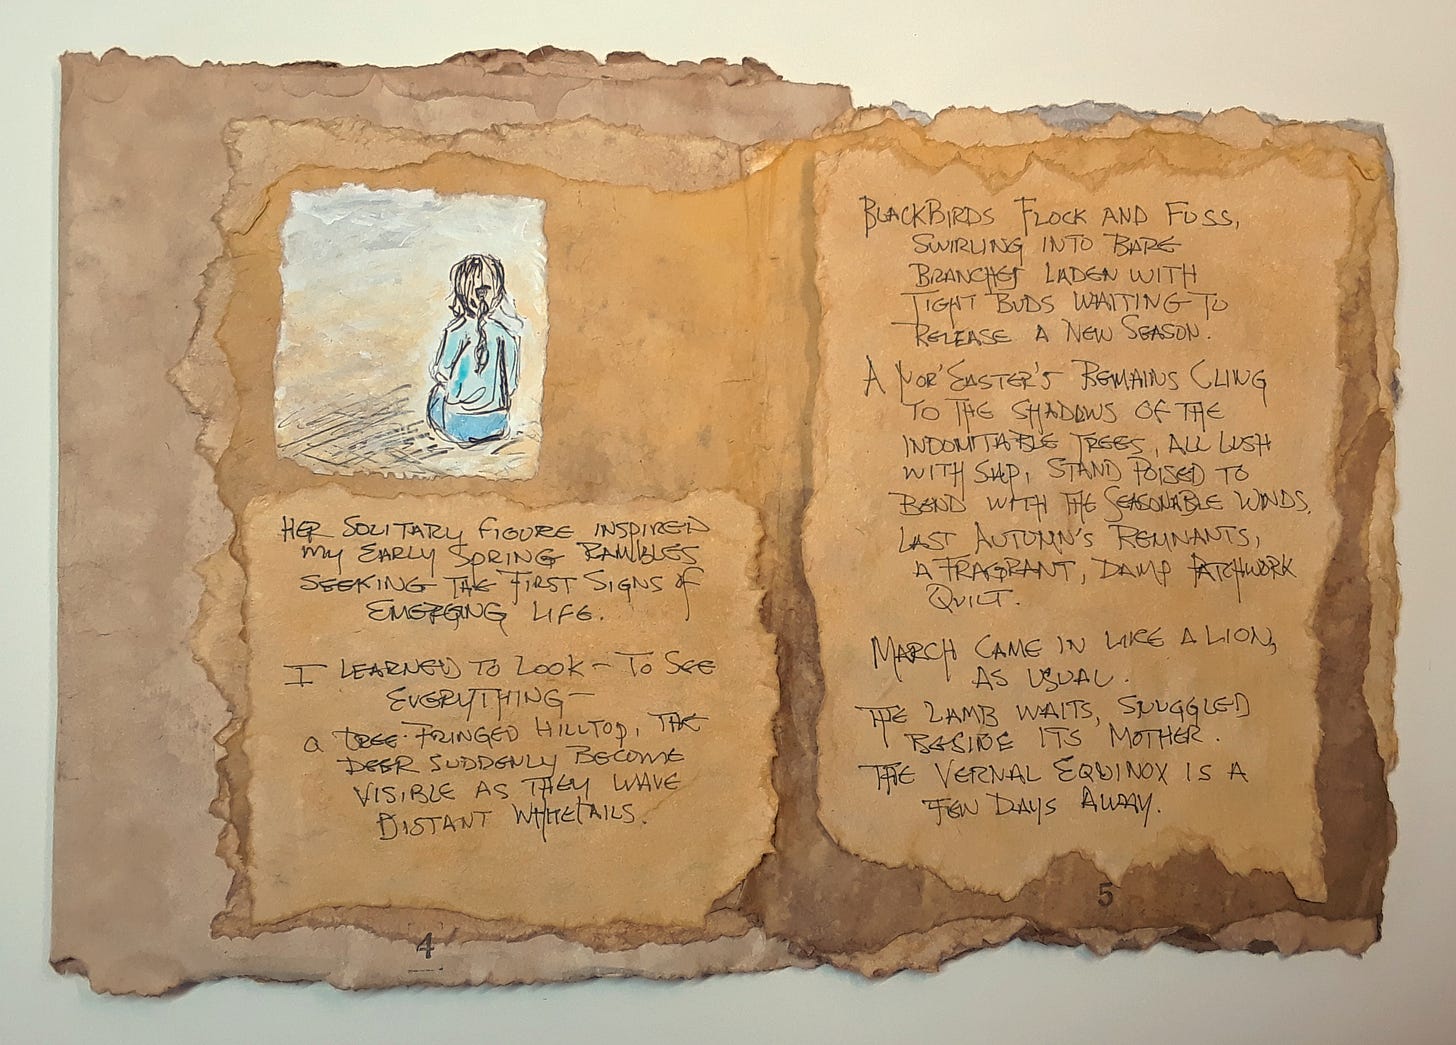 HER SOLITARY FIGURE INSPIRED
MY EARLY SPRING RAMBLES
SEEKING THE FIRST SIGNS of
EMERGING LIFE.
I LEARNED TO LOOK – TO SEE
EVERYTHING –
a TREE-FRINGED HILLTOP, THE
DEER SUDDENLY BECOME
VISIBLE AS THEY WAVE
DISTANT WHITETAILS.
4
BLACKBIRDS FLOCK AND FUSS,
SWIRLING INTO BARE
BRANCHES LADEN WITH
TIGHT BUDS WAITING TO
RELEASE A NEW SEASON.
A NOR'EASTER'S REMAINS CLING
TO THE SHADOWS OF THE
INDOMITABLE TREES, ALL LUSH
WITH SAP, STAND POISED TO
BEND WITH THE SEASONABLE WINDS.
LAST AUTUMN'S REMNANTS,
A FRAGRANT, DAMP PATCHWORK
QUILT.
MARCH CAME IN LIKE A LION,
AS USUAL.
THE LAMB WAITS, SNUGGLED
BESIDE ITS MOTHER.
THE VERNAL EQUINOX IS A
FEW DAYS AWAY.
5